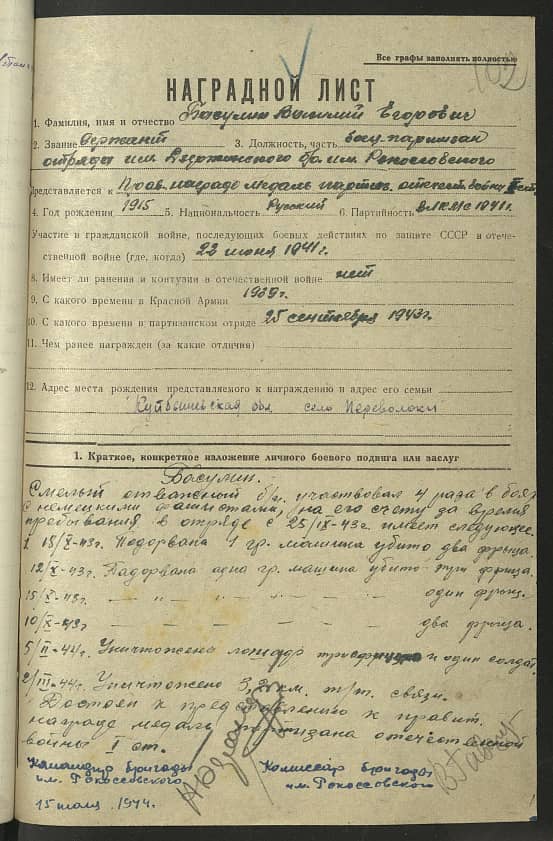 Все графы заполнять полностью
102
НАГРАДНОЙ ЛИСТ
1. Фамилия, имя и отчество Басулин Василий Егорович
2. Звание Сержант 3. Должность, часть боец-партизан
отряда им. Дзержинского бр. им. Рокоссовского
Представляется к Прав. награде медаль партиз. отечест. войны
4. Год рождения 1915 5. Национальность Русский 6. Партийность ВЛКМС 1941г.
Участие в гражданской войне, последующих боевых действиях по защите СССР и отече-
ственной войне (где, когда) 22 июня 1941г.
8. Имеет ли ранения и контузии в отечественной войне нет
9. С какого времени в Красной Армии 1939г.
10. С какого времени в партизанском отряде 25 сентября 1943г.
11. Чем ранее награжден (за какие отличия)
12. Адрес места рождения представляемого к награждению и адрес его семьи
Куйбышевская обл. село Переволоки
1. Краткое, конкретное изложение личного боевого подвига или заслуг
Басулин.
Смелый отважный участвовал 4 раза в боях
с немецкими фашистами, на его счету за время
пребывания в отряде с 25/IX-43г. имеет следующее:
Подорвана 1 гр. машина убито два фрица.
12/X-43г. Подорвана одна гр. машина убито три фрица.
15/X-43г. — " — " — " — один фриц.
10/X-43г. — " — " — " — два фрица.
5/II-44г. Уничтожена лошадь и один солдат.
2/III-44г. Уничтожено км. т/т. связи.
Достоен к представлению к правит.
награде медаль партизана отечественной
войны I ст.
Командир бригады Комиссар бригады
им. Рокоссовского им. Рокоссовского
1944.